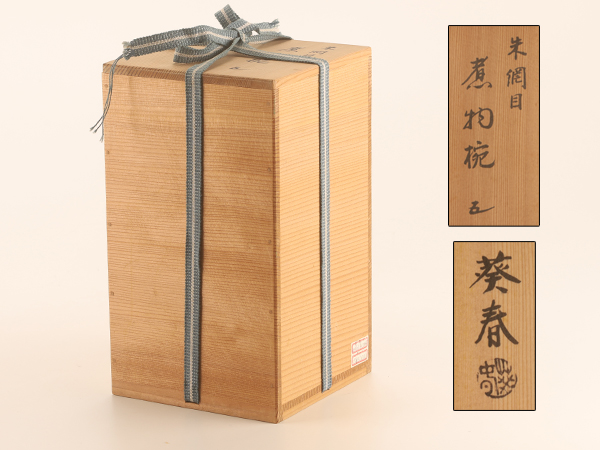 朱網目
煮物椀
五
葵春